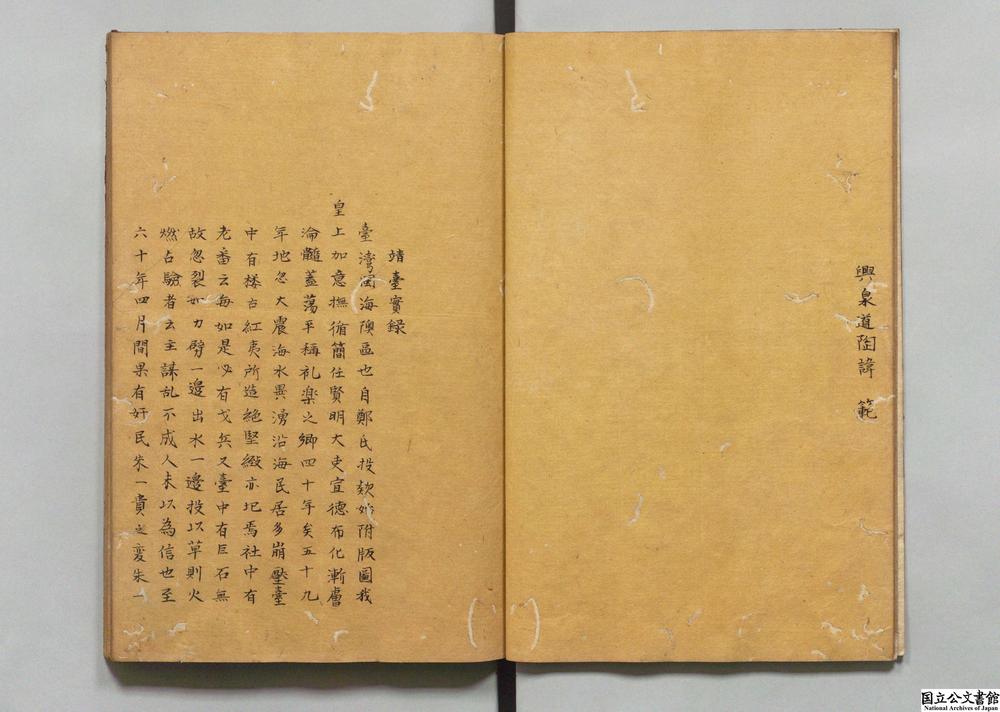 興泉道陶諱 範
靖臺實録
臺灣濱海隩區也自鄭氏投欵始附版圖我
皇上加意撫循簡任賢明大吏宣德布化漸膚
淪髓蓋蕩平稱礼樂之鄉四十年矣五十九
年地忽大震海水異湧沿海民居多崩壓臺
中有楼台紅夷所造絶堅緻亦圮焉社中有
老番云每如是必有戈兵又臺中有巨石無
故忽裂如刀劈一邊出水一邊投以草則火
燃占驗者云主謀乱不成人未以為信也至
六十年四月間果有奸民朱一貴之變朱一
国立公文書館
National Archives of Japan